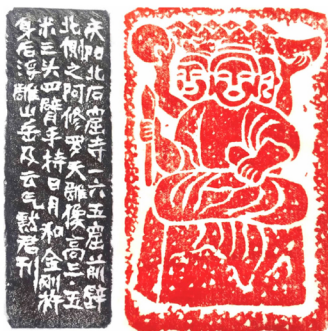 庆阳北石窟寺一六五窟前壁
北侧之阿修罗天雕像高三五
米三头四臂手持日月和金刚杵
身后浮雕山岳及云气黙君刊